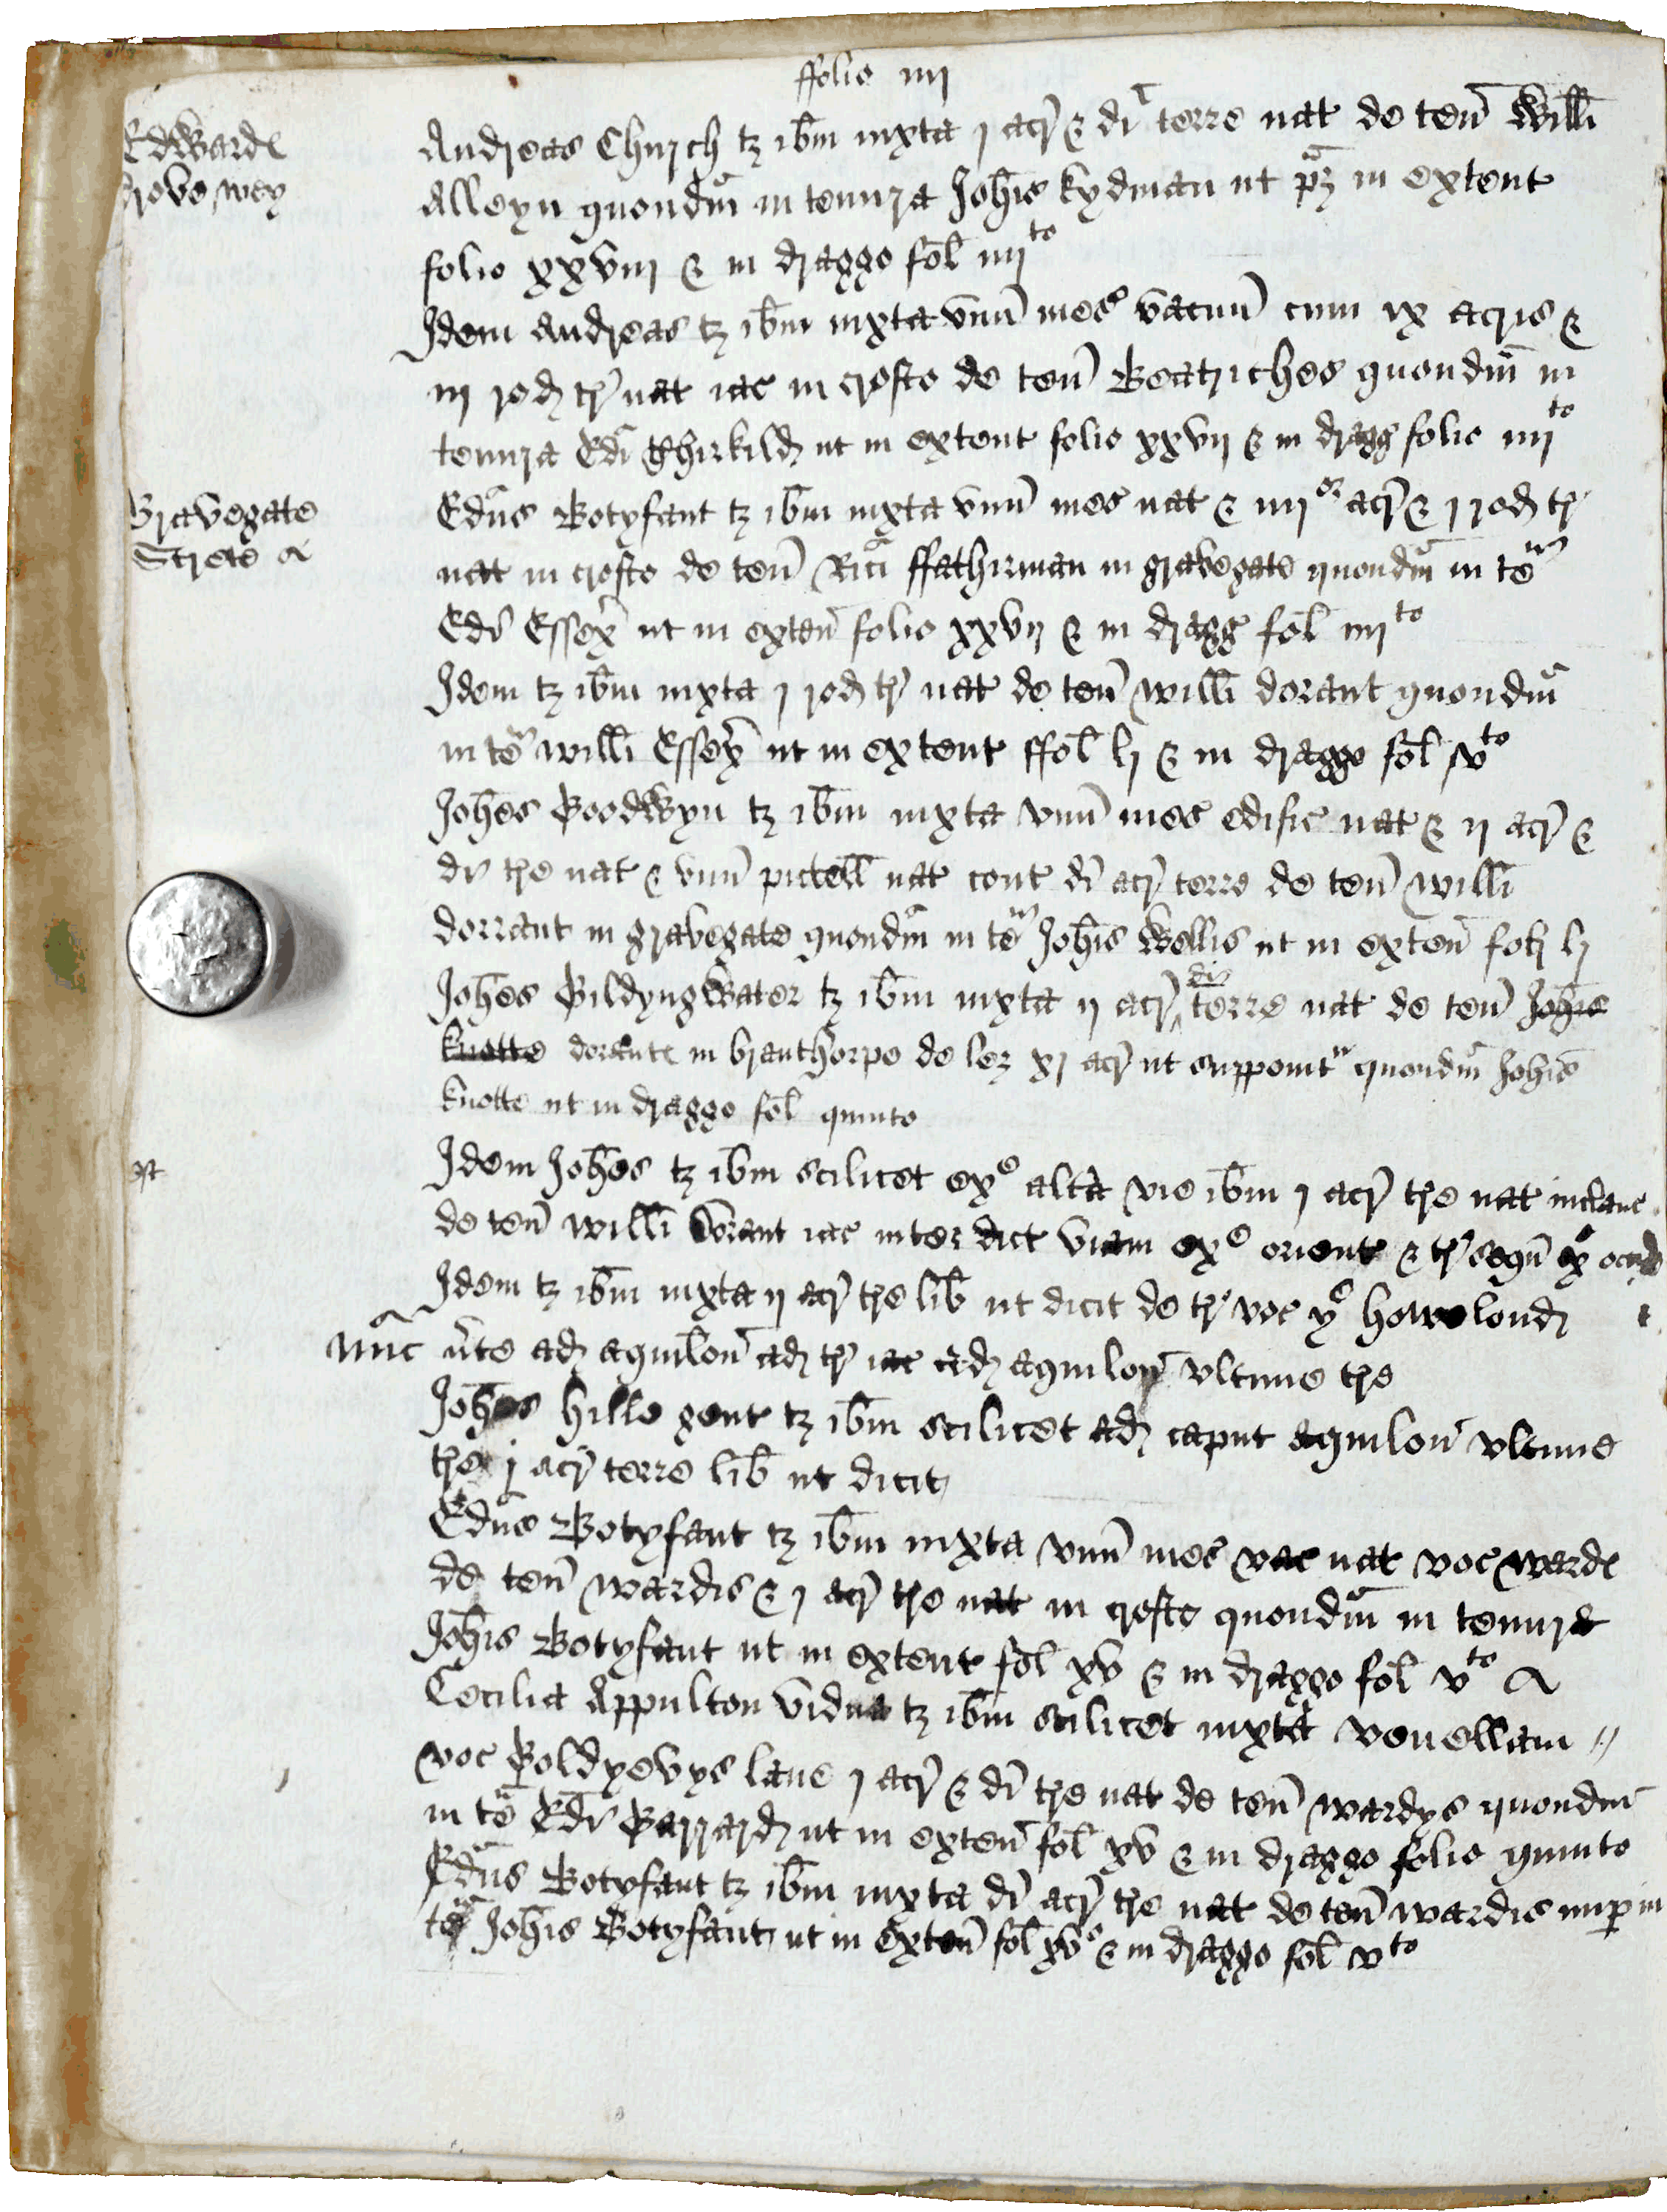 ffolio iiij
Edwarde
drove wey
Andreas Church tz ibm iuxta j acr & di terre nat de ten Willi
Alleyn quondm in tenura Johis kydman ut pz in extent
folio xxviij & in dragge fol iiijto
Idem Andreas tz ibm iuxta unu mes vacuu cum ix acris &
iij rod tr nat iac in crofto de ten Beatriches quondm in
tenura Edi Thirkild ut in extent folio xxvij & in dragg folio iiijto
Gravegate
Strete
Edus Botyfant tz ibm iuxta unu mes nat & iiijor acr & j rod tr
nat in crofto de ten Rici ffathirman in gravegate quondm in te
Edi Essex ut in exten folio xxvij & in dragg fol iiijto
Idem tz ibm iuxta j rod tr nat de ten willi dorant quondm
in te willi Essex ut in extent ffol lj & in dragge fol vto
Johes Goodwyn tz ibm iuxta unu mes edific nat & ij acr &
di tre nat & unu pictell nat cont di acr terre de ten willi
dorrant in gravegate quondm in te Johis Wellis ut in exten fol lj
Johes Gildyngwater tz ibm iuxta ij acr di terre nat de ten Johis
knotte dorante in branthorpe de lez xj acr ut supponit quondm Johis
knotte ut in dragge fol quinto
Idem Johes tz ibm scilicet ex alta vie ibm j acr tre nat
de ten willi dorant iac inter dict viam ex orient & tr ex
Idem tz ibm iuxta ij acr tre lib ut dicit de tr voc howelond
nuc ad aquilon ad tr iac aquilon ultime tre
Johes hille gent tz ibm scilicet ad caput aquilon ultime
tre j acr terre lib ut dicit
Edus Botyfant tz ibm iuxta unu mes vac nat voc warde
de ten wardis & j acr tre nat in crofto quondm in tenura
Johis Botyfant ut in extent fol xv & in dragge fol vto
Cecilia Appulton vidua tz ibm scilicet iuxta venellam
voc Goldyevys lane j acr & di tre nat de ten wardys quondm
in te Edi Garrard ut in exten fol xv & in dragge folio quinto
Edus Botyfant tz ibm iuxta di acr tre nat de ten wardis nup in
te Johis Botyfant ut in exten fol xv & in dragge fol vto